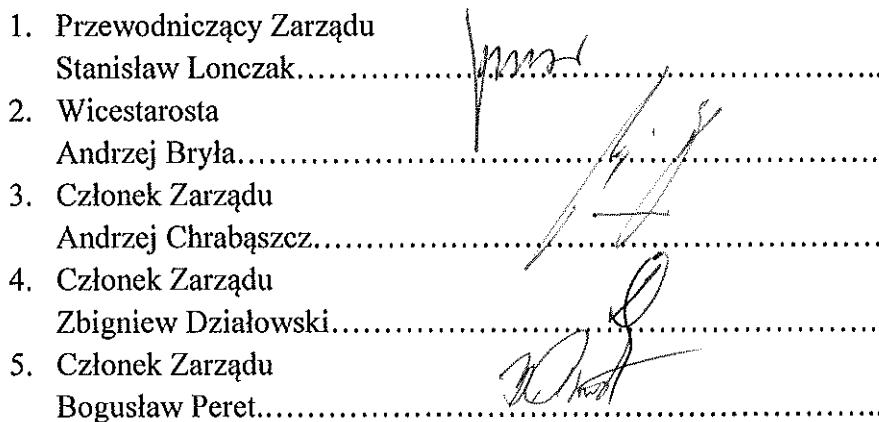 1. Przewodniczący Zarządu
Stanisław Lonczak........................................................
2. Wicestarosta
Andrzej Bryła................................................................
3. Członek Zarządu
Andrzej Chrabąszcz......................................................
4. Członek Zarządu
Zbigniew Działowski....................................................
5. Członek Zarządu
Bogusław Peret.............................................................